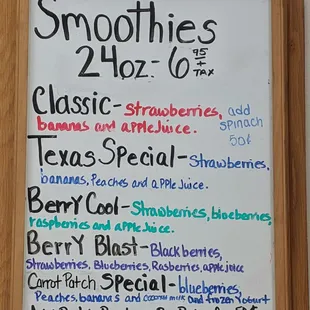 Smoothies
24oz - 6 95 + TAX
Classic - Strawberries, add
bananas and apple juice. spinach
50¢
Texas Special - Strawberries,
bananas, Peaches and apple Juice.
Berry Cool - Strawberries, blueberries,
raspberries and apple juice.
Berry Blast - Blackberries,
Strawberries, Blueberries, Rasberries, apple juice
Carrot Patch Special - blueberries,
Peaches, bananas and coconut milk and frozen Yogurt